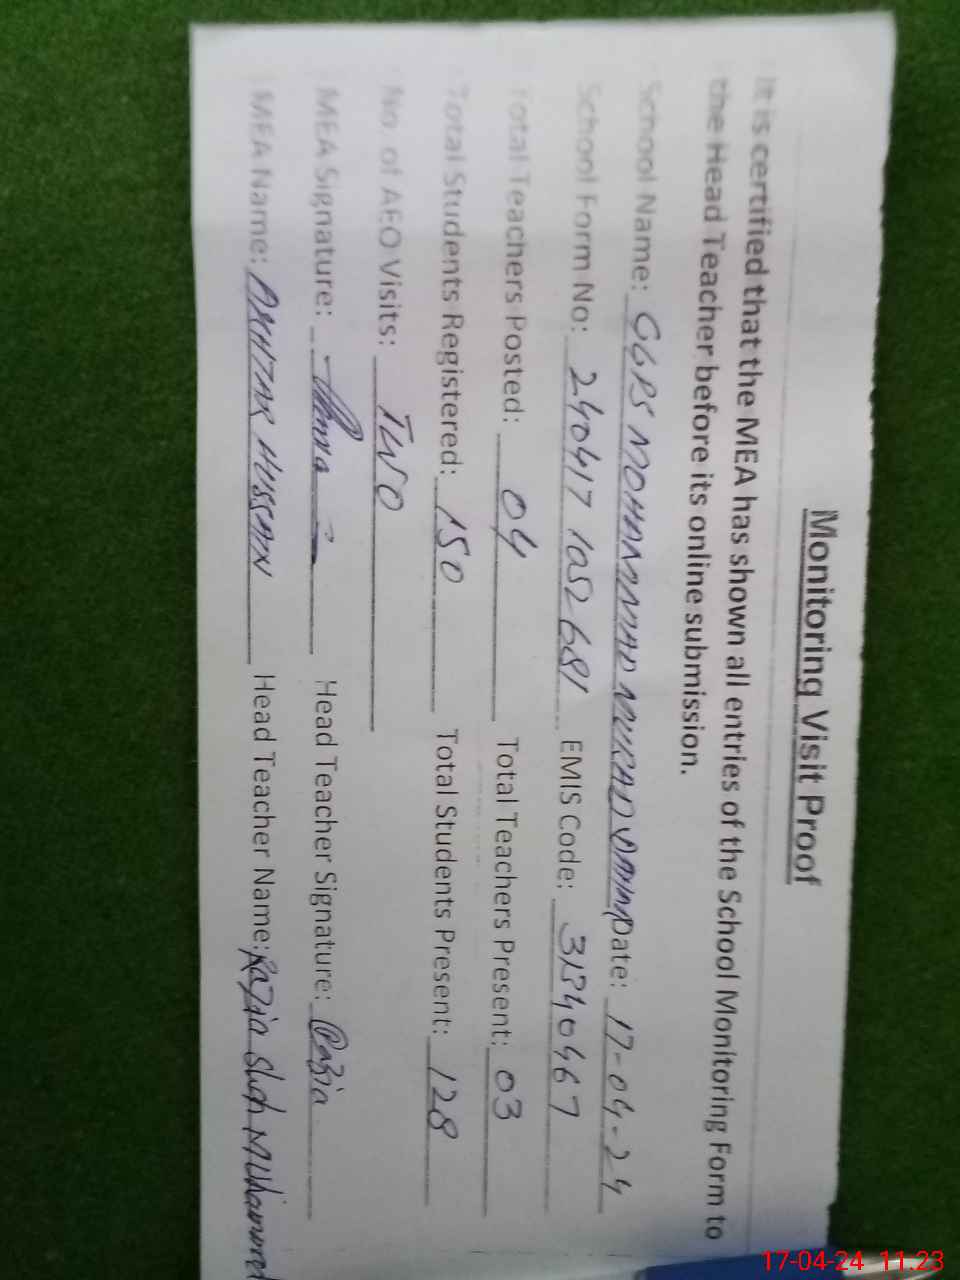 Monitoring Visit Proof
It is certified that the MEA has shown all entries of the School Monitoring Form to
the Head Teacher before its online submission.
School Name: GGPS MOHAMMAD MURAD DAHA Date: 17-04-24
School Form No: 240417 1052681 EMIS Code: 31340467
Total Teachers Posted: 04 Total Teachers Present: 03
Total Students Registered: 150 Total Students Present: 128
No. of AEO Visits: TWO
MEA Signature: Head Teacher Signature: Razia
MEA Name: AKHTAR HUSSAIN Head Teacher Name: Razia Muhammad
17-04-24 11.23